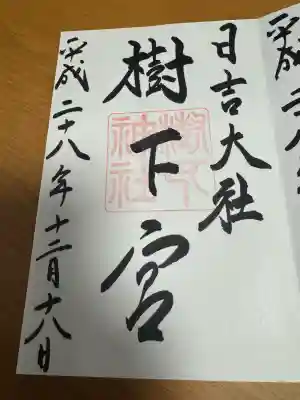 日吉大社
樹下宮
樹下神社
平成二十八年十二月十八日
平成二八